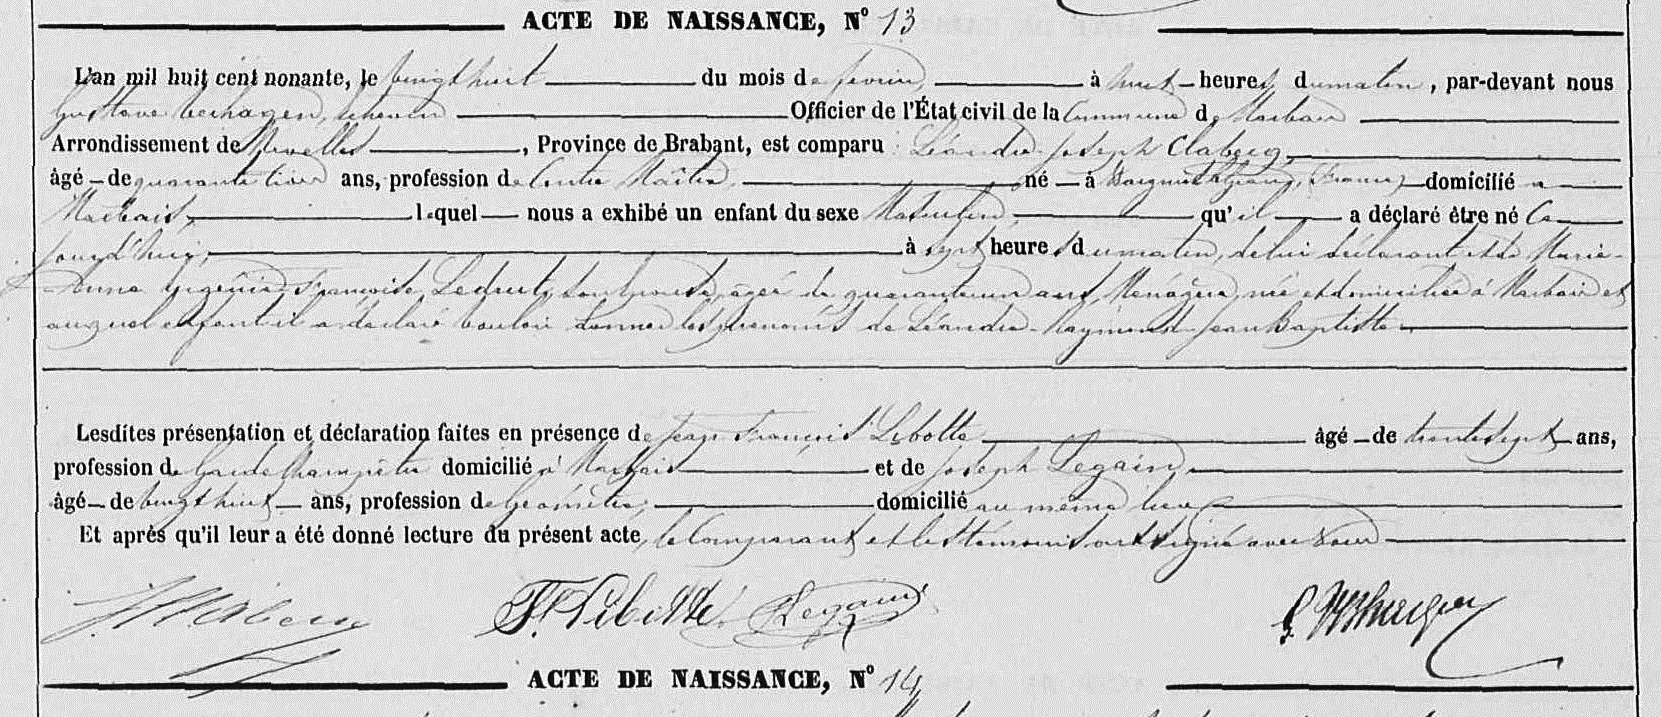 ACTE DE NAISSANCE, N° 13
L'an mil huit cent nonante, le vingt huit du mois de fevrier, à huit heures du matin, par-devant nous
Gustave Verhagen, echevin Officier de l'État civil de la Commune de Marbais
Arrondissement de Nivelles, Province de Brabant, est comparu Léandre Joseph Clabecq,
âgé de quarante trois ans, profession de Contre Maître, né à (France) domicilié à
Marbais, lequel nous a exhibé un enfant du sexe Masculin qu'il a déclaré être né Ce
jourd'hui, à sept heures du matin, de lui déclarant et de Marie
Anne Eugénie Françoise Ledrut, son épouse, agée de quarante un ans, Ménagère, née et domiciliée à Marbais et
auquel enfant il a déclaré vouloir donner les prénoms de Léandre Raymond Jean Baptiste
Lesdites présentation et déclaration faites en présence de Jean François Lebotte âgé de trente sept ans,
profession de Garde Champêtre domicilié à Marbais et de Joseph Legain,
âgé de vingt huit ans, profession de Géomètre, domicilié au même lieu
Et après qu'il leur a été donné lecture du présent acte, le Comparant et les témoins ont signé avec nous
F. Lebotte Legain
ACTE DE NAISSANCE, N° 14